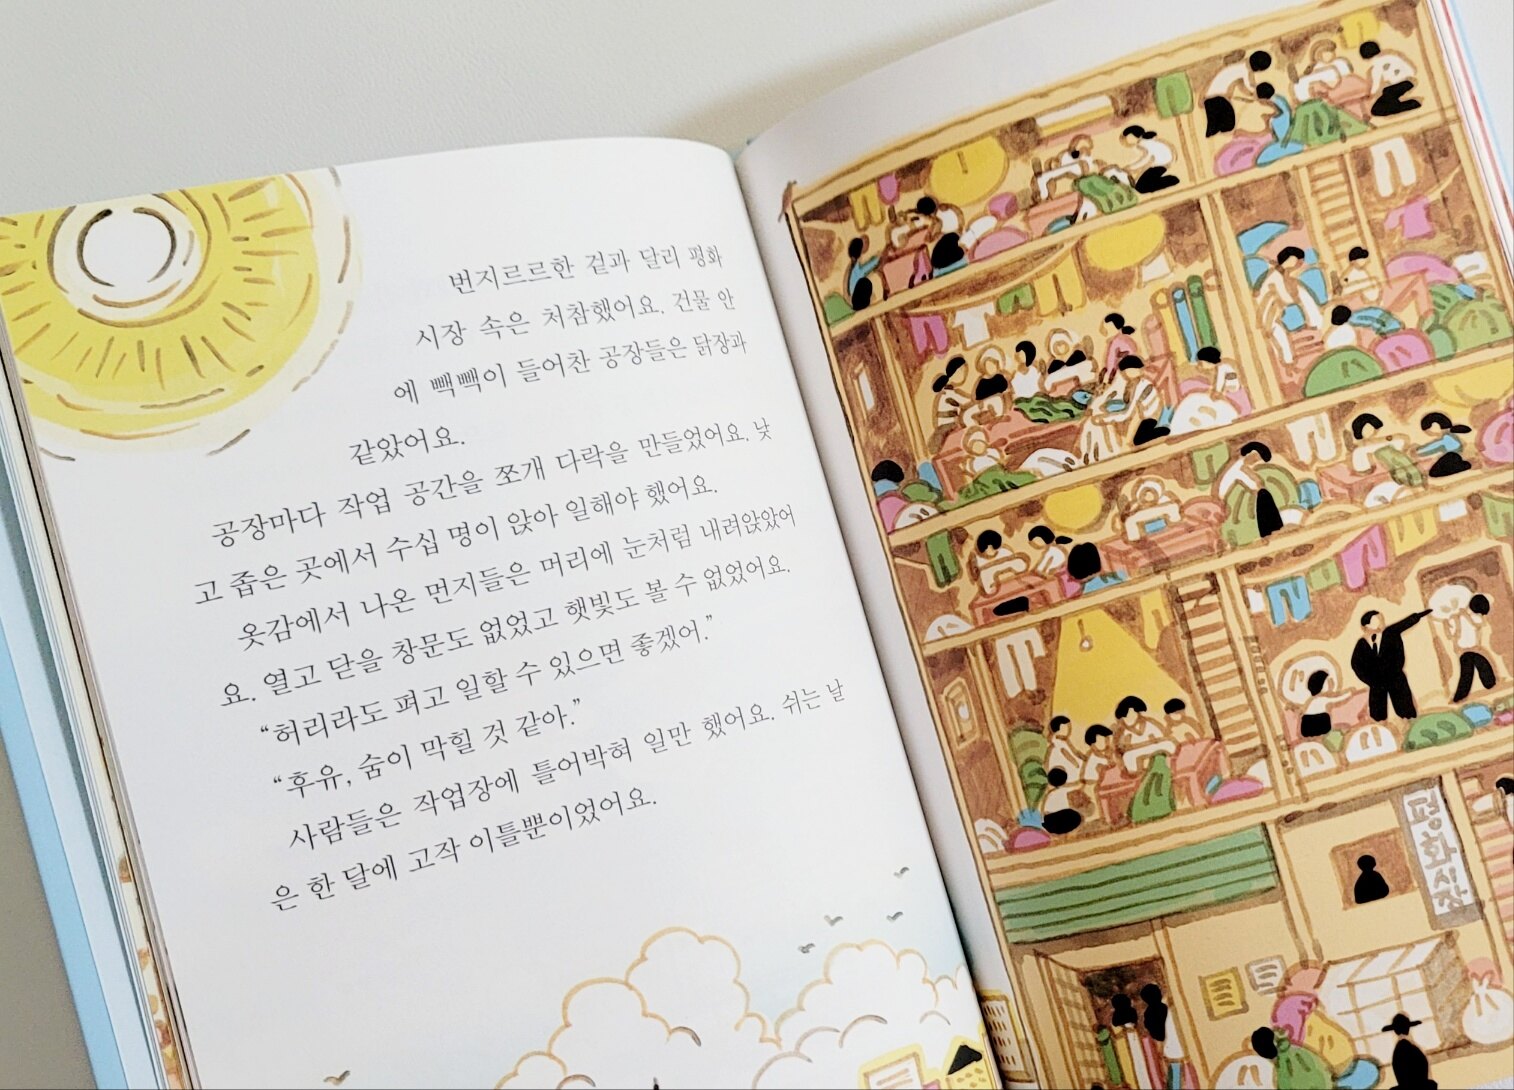 번지르르한 겉과 달리 평화
시장 속은 처참했어요. 건물 안
에 빽빽이 들어찬 공장들은 닭장과
같았어요.
공장마다 작업 공간을 쪼개 다락을 만들었어요. 낮
고 좁은 곳에서 수십 명이 앉아 일해야 했어요.
옷감에서 나온 먼지들은 머리에 눈처럼 내려앉았어
요. 열고 닫을 창문도 없었고 햇빛도 볼 수 없었어요.
“허리라도 펴고 일할 수 있으면 좋겠어.”
“후유, 숨이 막힐 것 같아.”
사람들은 작업장에 틀어박혀 일만 했어요. 쉬는 날
은 한 달에 고작 이틀뿐이었어요.
평화시장